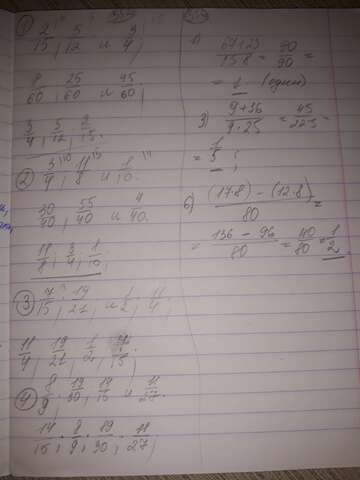 ① 2/15, 5/12 и 3/4;
8/60, 25/60 и 45/60;
3/4, 5/12, 2/15.
② 3/4, 11/8 и 1/10.
30/40, 55/40 и 4/40.
11/8, 3/4, 1/10;
③ 7/15, 19/21, и 1/2, 11/4;
11/4, 19/21, 1/2, 7/15;
④ 8/9, 19/30, 14/15 и 11/27.
14/15, 8/9, 19/30, 11/27;
= 90/90 =
= 1 (один)
3) (9+36)/(9·25) = 45/225 =
= 1/5;
6) ((17·8) – (12·8))/80 =
= (136 – 96)/80 = 40/80 = 1/2